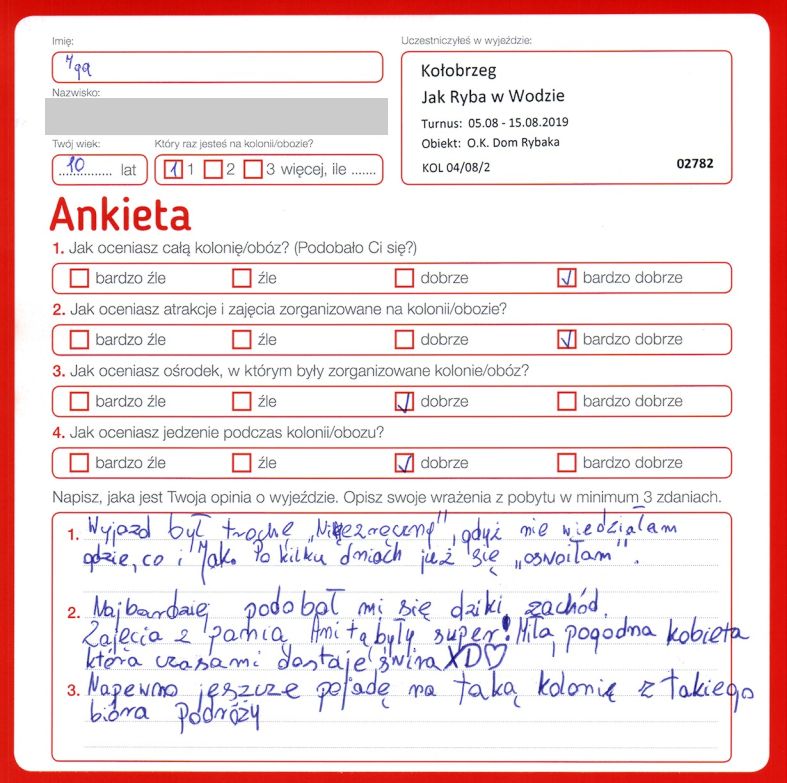 Imię:
Iga
Uczestniczyłeś w wyjeździe:
Kołobrzeg
Jak Ryba w Wodzie
Turnus: 05.08 - 15.08.2019
Obiekt: O.K. Dom Rybaka
KOL 04/08/2 02782
Nazwisko:
Twój wiek:
10 lat
Który raz jesteś na kolonii/obozie?
1 2 3 więcej, ile .......
Ankieta
1. Jak oceniasz całą kolonię/obóz? (Podobało Ci się?)
bardzo źle źle dobrze √ bardzo dobrze
2. Jak oceniasz atrakcje i zajęcia zorganizowane na kolonii/obozie?
bardzo źle źle dobrze √ bardzo dobrze
3. Jak oceniasz ośrodek, w którym były zorganizowane kolonie/obóz?
bardzo źle źle √ dobrze bardzo dobrze
4. Jak oceniasz jedzenie podczas kolonii/obozu?
bardzo źle źle √ dobrze bardzo dobrze
Napisz, jaka jest Twoja opinia o wyjeździe. Opisz swoje wrażenia z pobytu w minimum 3 zdaniach.
1. Wyjazd był trochę „Niezręczny", gdyż nie wiedziałam
gdzie, co i jak. Po kilku dniach już się „oswoiłam".
2. Najbardziej podobał mi się dziki zachód.
Zajęcia z panią Anitą były super! Miła, pogodna kobieta
która czasami dostaje świra XD♡
3. Napewno jeszcze pojadę na taką kolonię z takiego
bióra podróży